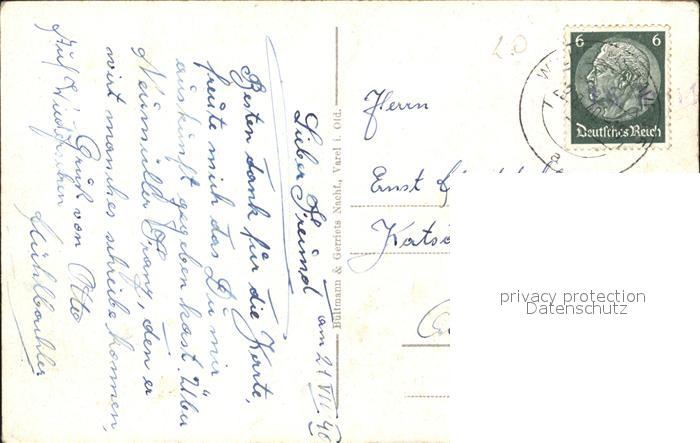 Lieber Freund am 21 VII. 40
Besten Dank für die Karte,
freute mich das Du mir
auskunft gegeben hast. Über
Neumüller Franz, den er
wird manches schreibe kommen,
Gruß von Otto
Auf Wiedersehen
Mühlbachler
Bültmann & Gerriets Nachf., Varel i. Old.
Herrn
Ernst
20
6 6
Deutsches Reich
privacy protection
Datenschutz